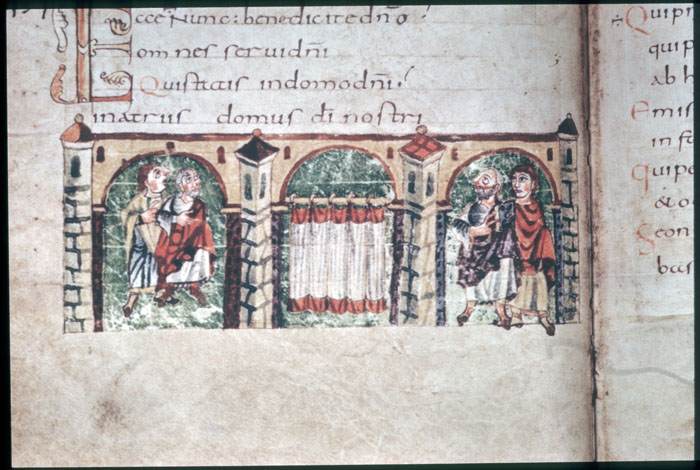 Ecce Nunc: benedicite dño
omnes serui dñi
Qui statis in domo dñi
in atriis domus di nostri
Qui pi
qui p
ab h
Emis
in
qui p
& o
Seon
bas